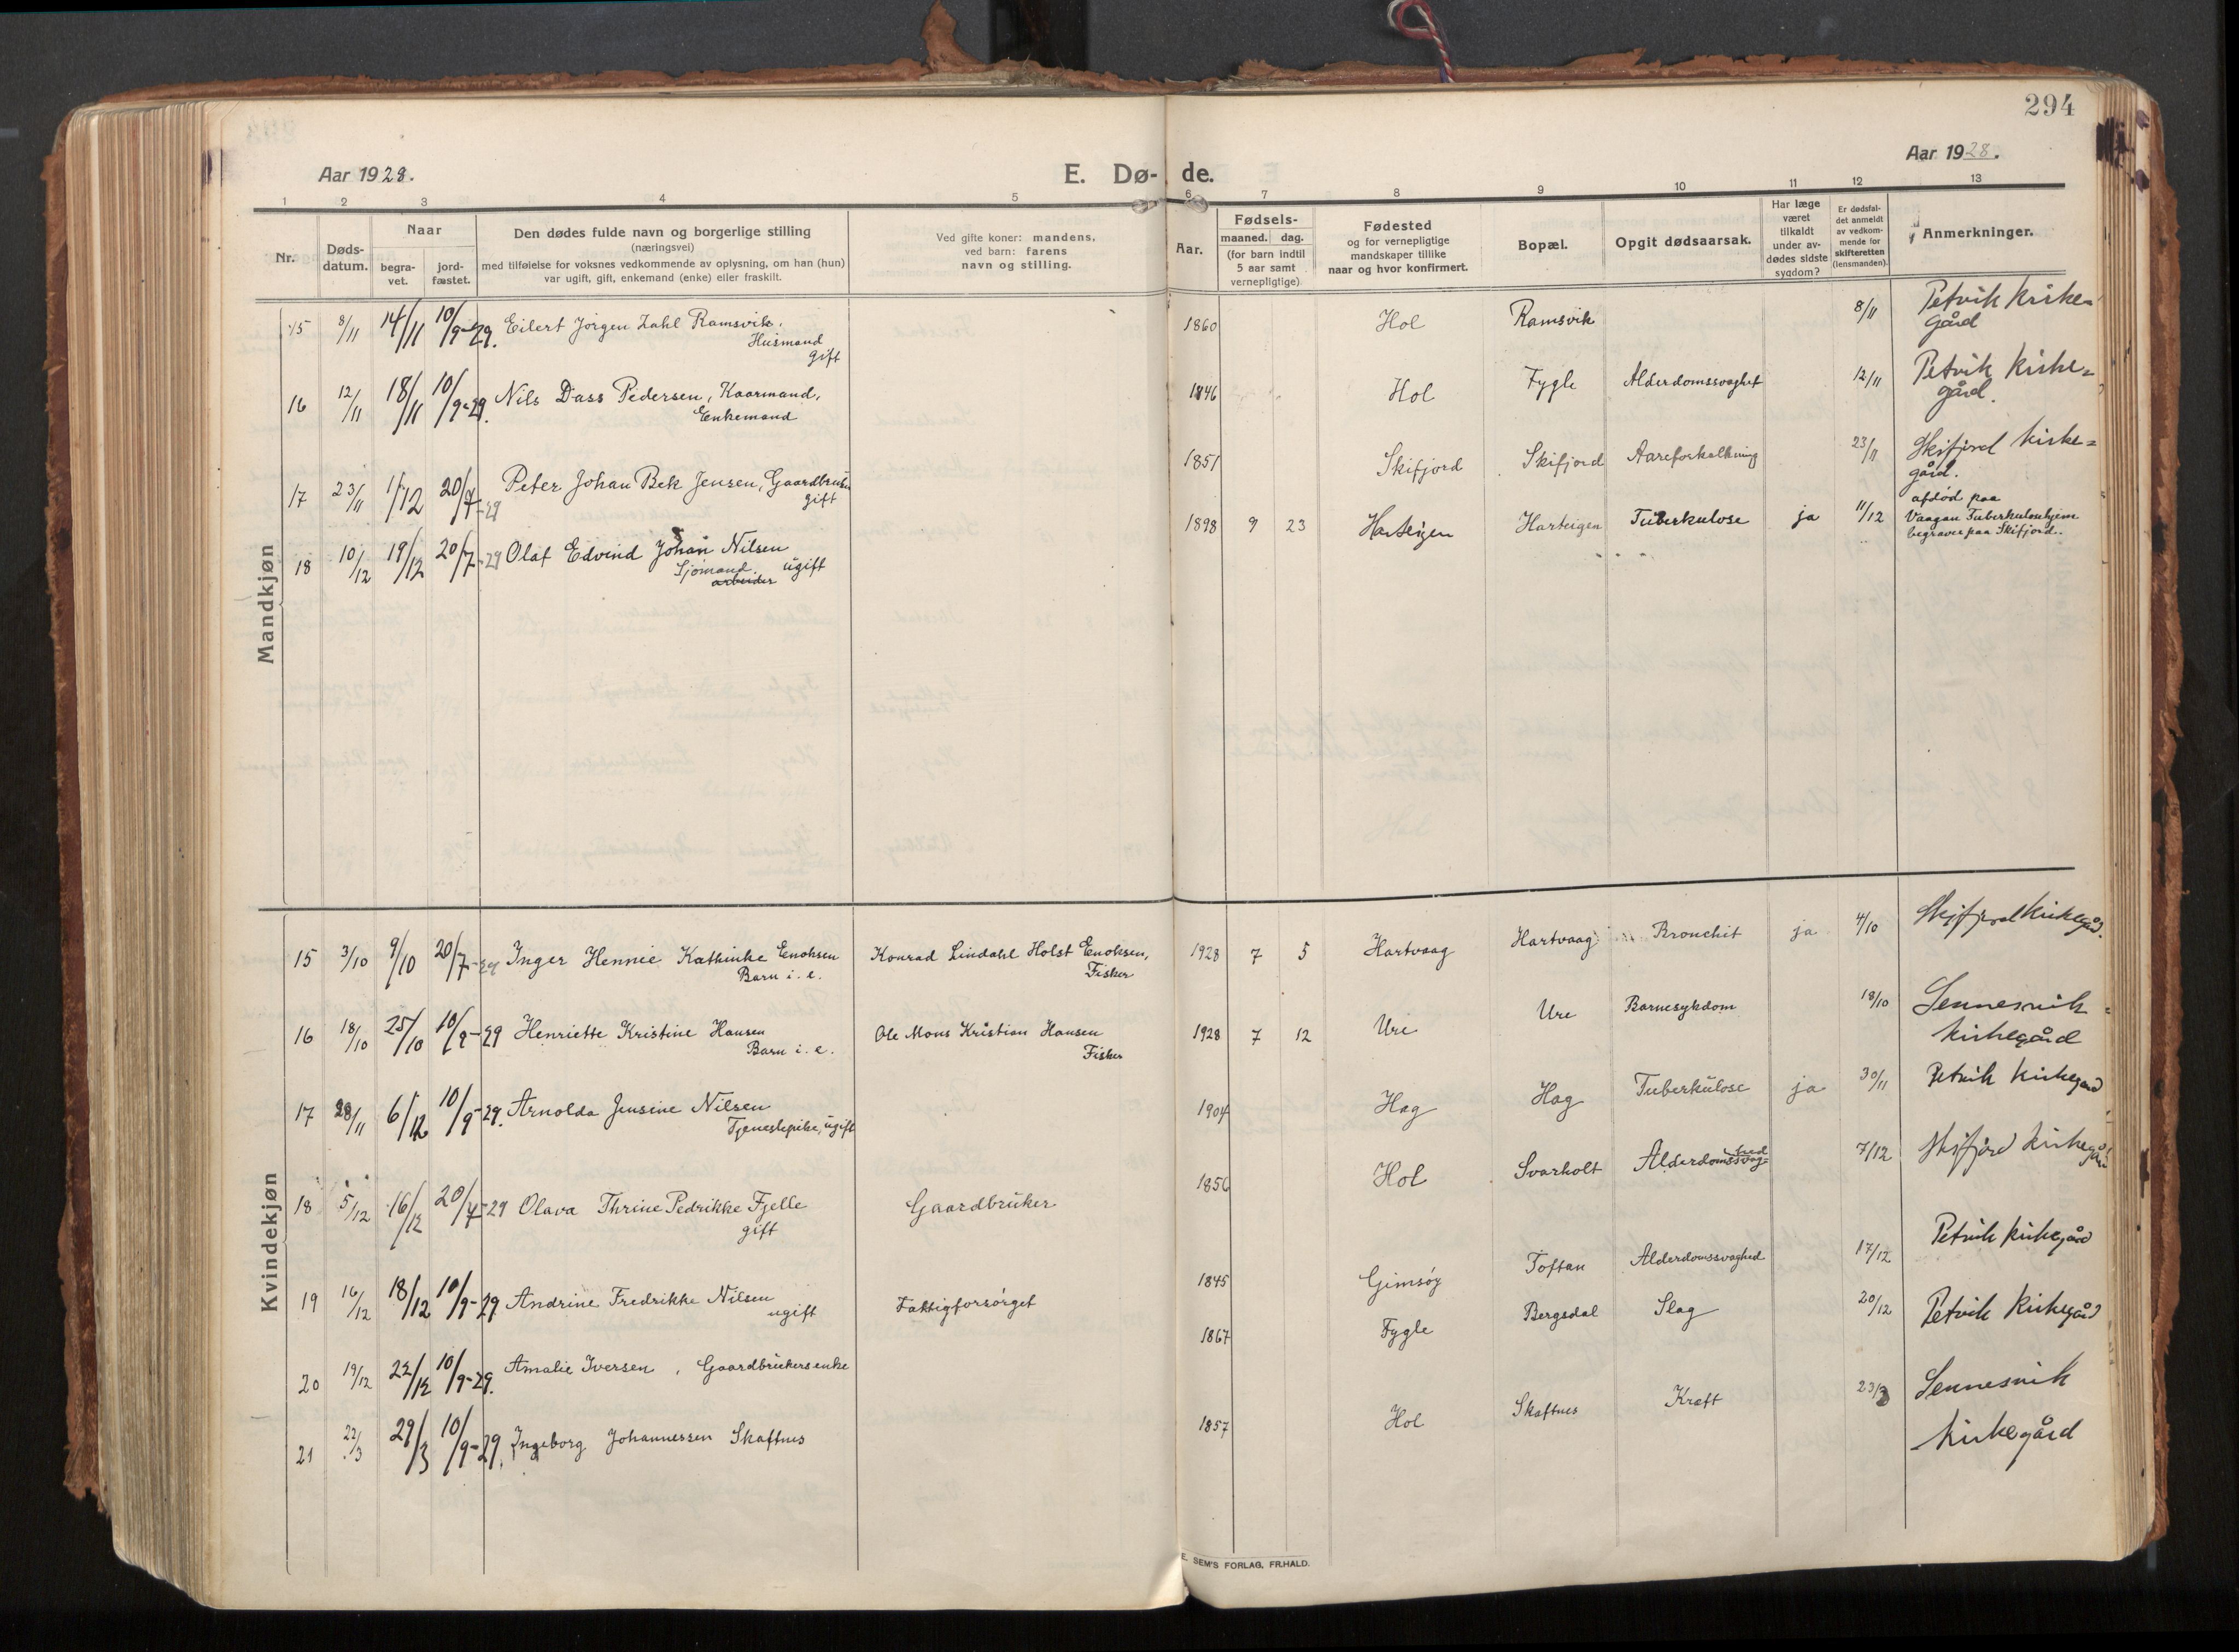 294
Aar 1928.
E. Dø- de.
Aar 1928.
1 2 3 4 5 6 7 8 9 10 11 12 13
Nr.
Døds-
datum.
Naar
begra-
vet.
jord-
fæstet.
Den dødes fulde navn og borgerlige stilling
(næringsvei)
med tilføielse for voksnes vedkommende av oplysning, om han (hun)
var ugift, gift, enkemand (enke) eller fraskilt.
Ved gifte koner: mandens,
ved barn: farens
navn og stilling.
Aar.
Fødsels-
maaned. dag.
(for barn indtil
5 aar samt
vernepligtige)
Fødested
og for vernepligtige
mandskaper tillike
naar og hvor konfirmert.
Bopæl.
Opgit dødsaarsak.
Har læge
været
tilkaldt
under av-
dødes sidste
sygdom?
Er dødsfal-
det anmeldt
av vedkom-
mende for
skifteretten
(lensmanden).
Anmerkninger.
Mandkjøn
15 8/11 14/11 10/9-29. Eilert Jørgen Zahl Ramsvik, 1860 Hol Ramsvik 8/11 Petvik kirke-
Husmand gård
gift
16 12/11 18/11 10/9-29. Nils Dass Pedersen, Kaarmand, 1846 Hol Fygle Alderdomssvaghet 12/11 Petvik Kirke=
Enkemand gård.
17 23/11 1/12 20/7-29 Peter Johan Bek Jensen, Gaardbruker 1851 Skifjord Skifjord Aareforkalkning 23/11 Skifjord kirke=
gift gård.
18 10/12 19/12 20/7-29 Olaf Edvind Johan Nilsen 1898 9 23 Harteigen Harteigen Tuberkulose ja 11/12 afdød paa
Sjømand ugift Vaagan Tuberkulosehjem
arbeider begravet paa Skifjord.
Kvindekjøn
15 3/10 9/10 20/7-29 Inger Hennie Kathinke Enoksen Konrad Lindahl Holst Enoksen, 1928 7 5 Hartvaag Hartvaag Bronchit ja 4/10 Skifjord kirkegård.
Barn i. e. Fisker
16 18/10 25/10 10/9-29 Henriette Kristine Hansen Ole Mons Kristian Hansen 1928 7 12 Ure Ure Barnesykdom 18/10 Sennesvik
Barn i. e. Fisker kirkegård
17 28/11 6/12 10/9-29. Arnolda Jensine Nilsen 1904 Hag Hag Tuberkulose ja 30/11 Petvik kirkegård
Tjenestepike, ugift
18 5/12 16/12 20/7-29 Olava Thrine Pedrikke Fjelle Gaardbruker 1856 Hol Svarholt Alderdomssvag=hed 7/12 Skifjord kirkegård
gift
19 16/12 18/12 10/9-29 Andrine Fredrikke Nilsen Fattigforsørget 1845 Gimsøy Toftan Alderdomssvaghed 17/12 Petvik kirkegård
ugift
20 19/12 22/12 10/9-29. Amalie Iversen, Gaardbrukersenke 1867 Fygle Bergsdal Slag 20/12 Petvik kirkegård
21 22/3 29/3 10/9-29. Ingeborg Johannessen Skaftnes 1857 Hol Skaftnes Kræft 23/3 Sennesvik
kirkegård
E. SEM'S FORLAG, FR.HALD.